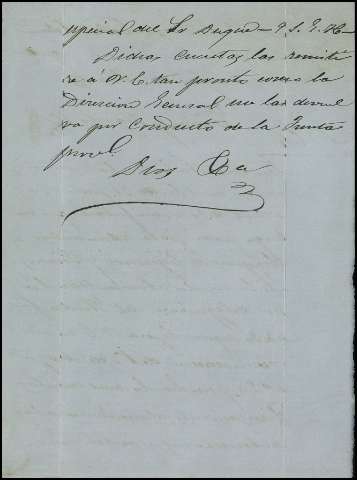 especial del Sr Duque - q. s. g. h.
Dichas cuentas las remiti
ré á V. E. tan pronto como la
Direccion General me las devuel
va por conducto de la Junta
provl.
Dios &a